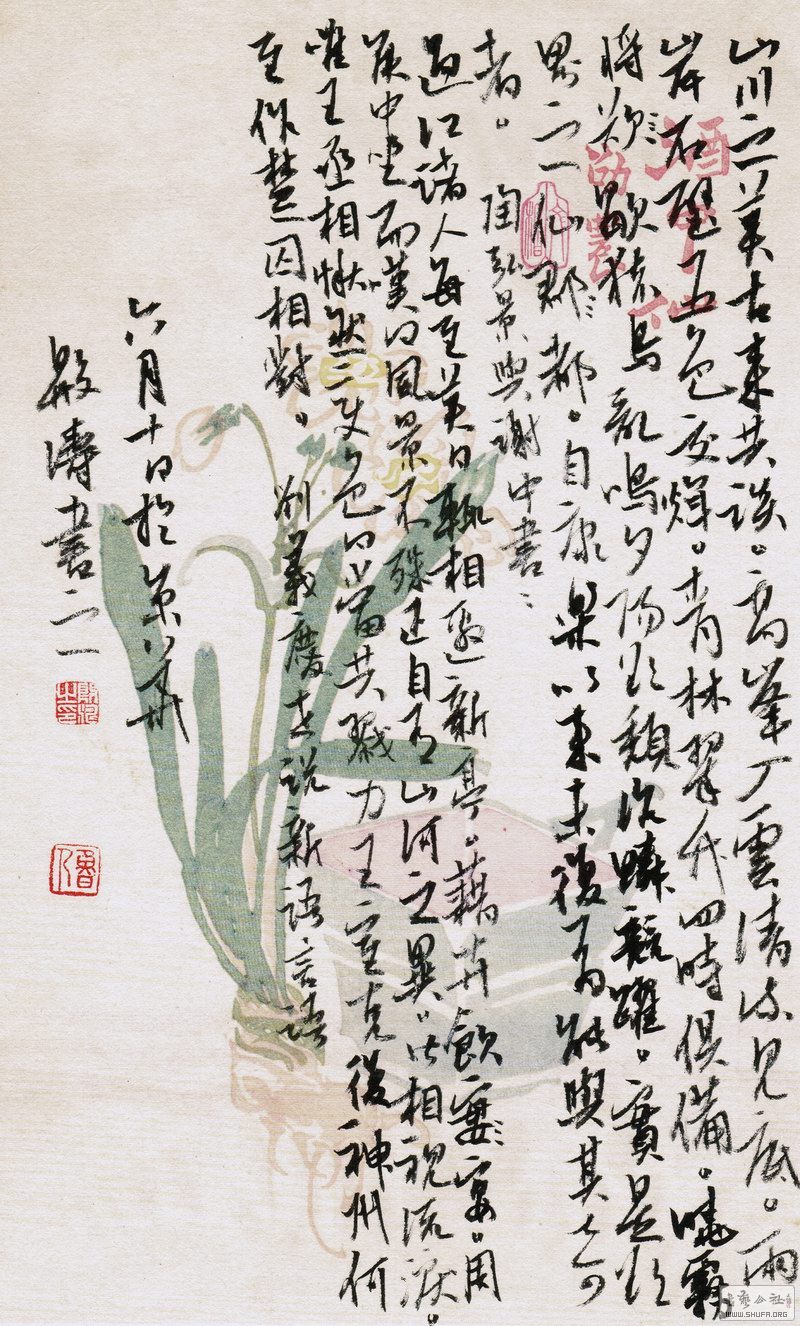 山川之美古来共談。高峯入雲清流見底。兩
岸石壁五色交輝。青林翠竹四時俱備。曉霧
將歇猿鳥亂鳴夕陽欲頹沈鱗競躍。實是欲
界之仙都。自康樂以来未復有能與其奇
者。 陶弘景與謝中書
過江諸人每至美日輒相邀新亭。藉卉飲宴。周
侯中坐而嘆曰風景不殊正自有山河之異。皆相視流淚。
唯王丞相愀然變色曰當共戮力王室克復神州何
至作楚囚相對。 劉義慶世說新語言語
六月十日於
殷濤書之
WWW.SHUFA.ORG